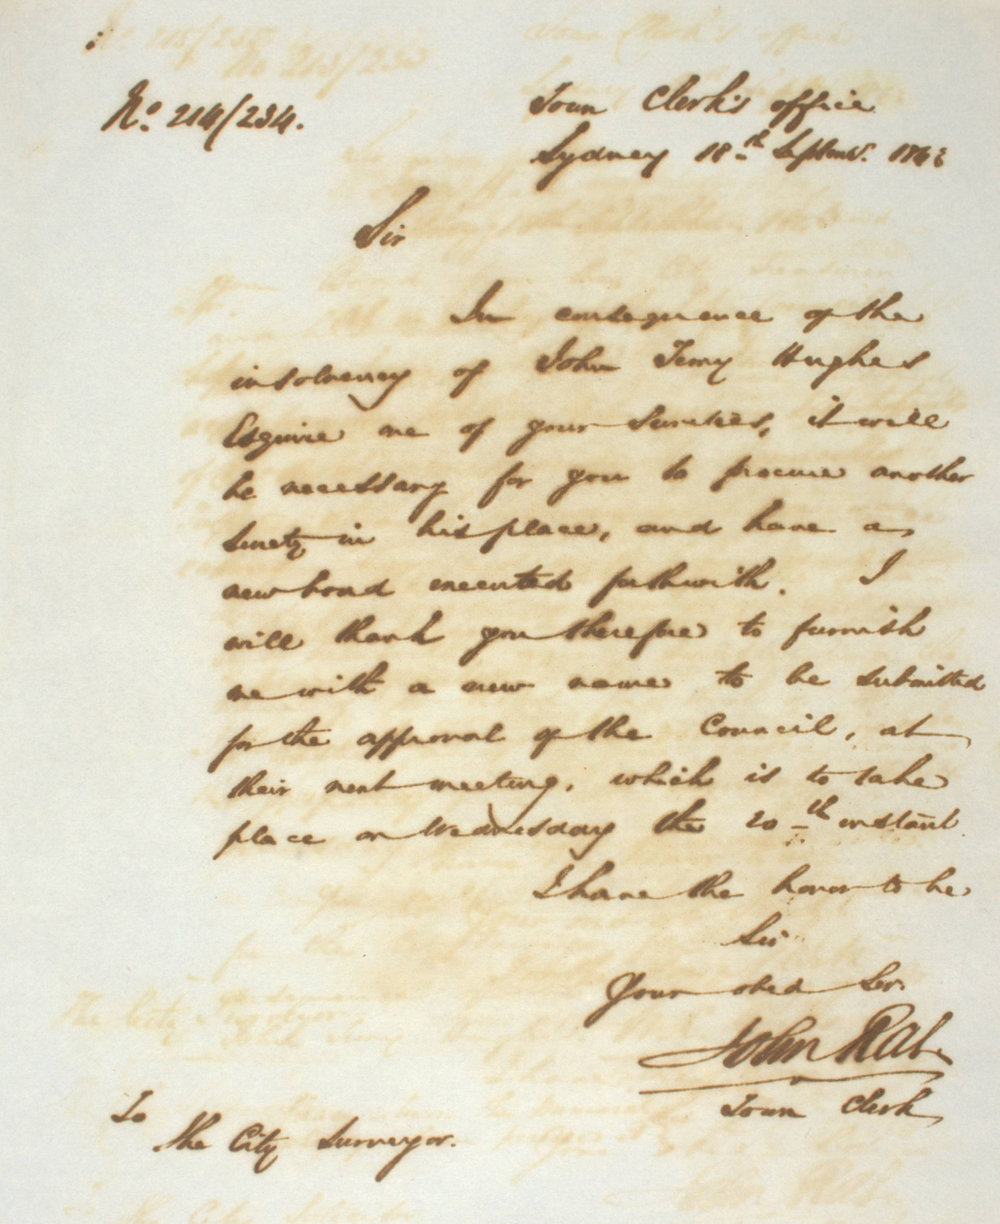 No. 214/234.
Town Clerk's office
Sydney 18th Septemr. 1843
Sir
In consequence of the
insolvency of John Terry Hughes
Esquire one of your Sureties, it will
be necessary for you to procure another
surety in his place, and have a
new bond executed forthwith. I
will thank you therefore to furnish
me with a new name to be submitted
for the approval of the Council, at
their next meeting, which is to take
place on Wednesday the 20th instant.
I have the honor to be
Sir
Your obed Ser.
John Rae
Town Clerk
To
the City Surveyor.